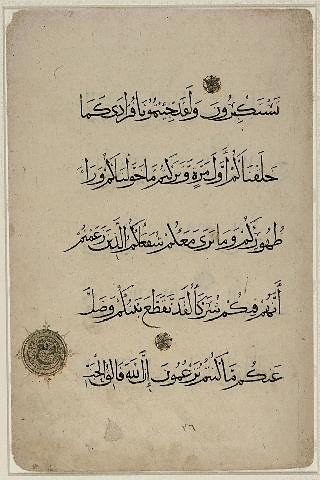 تستكبرون ولقد جئتمونا فرادى كما
خلقناكم أول مرة وتركتم ما خولناكم وراء
ظهوركم وما نرى معكم شفعاءكم الذين زعمتم
أنهم فيكم شركاء لقد تقطع بينكم وضل
عنكم ما كنتم تزعمون إن الله فالق الحب
٢٦